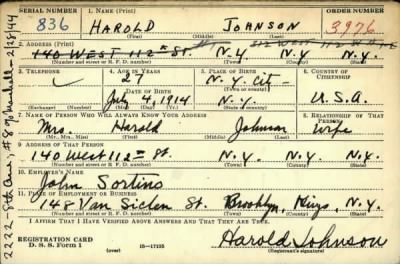 SERIAL NUMBER 1. NAME (Print) ORDER NUMBER
836 HAROLD JOHNSON 3976
(First) (Middle) (Last)
2. ADDRESS (Print) 312 WEST 112 ST
140 WEST 112th St. N.Y. N.Y.
(Number and street or R. F. D. number) (Town) (County) (State)
3. TELEPHONE 4. AGE IN YEARS 5. PLACE OF BIRTH 6. COUNTRY OF CITIZENSHIP
27 N.Y. City
DATE OF BIRTH (Town or county)
July 4, 1914 N.Y. U.S.A.
(Exchange) (Number) (Mo.) (Day) (Yr.) (State or country)
7. NAME OF PERSON WHO WILL ALWAYS KNOW YOUR ADDRESS 8. RELATIONSHIP OF THAT PERSON
Mrs. Harold Johnson wife
(Mr., Mrs., Miss) (First) (Middle) (Last)
9. ADDRESS OF THAT PERSON
140 West 112th St. N.Y. N.Y. N.Y.
(Number and street or R. F. D. number) (Town) (County) (State)
10. EMPLOYER'S NAME
John Sortino
11. PLACE OF EMPLOYMENT OR BUSINESS
148 Van Siclen St. Brooklyn, Kings, N.Y.
(Number and street or R. F. D. number) (Town) (County) (State)
I AFFIRM THAT I HAVE VERIFIED ABOVE ANSWERS AND THAT THEY ARE TRUE.
REGISTRATION CARD
D. S. S. FORM 1 (over) 16—17105 Harold Johnson
(Registrant's signature)
2222 8th Ave., #8